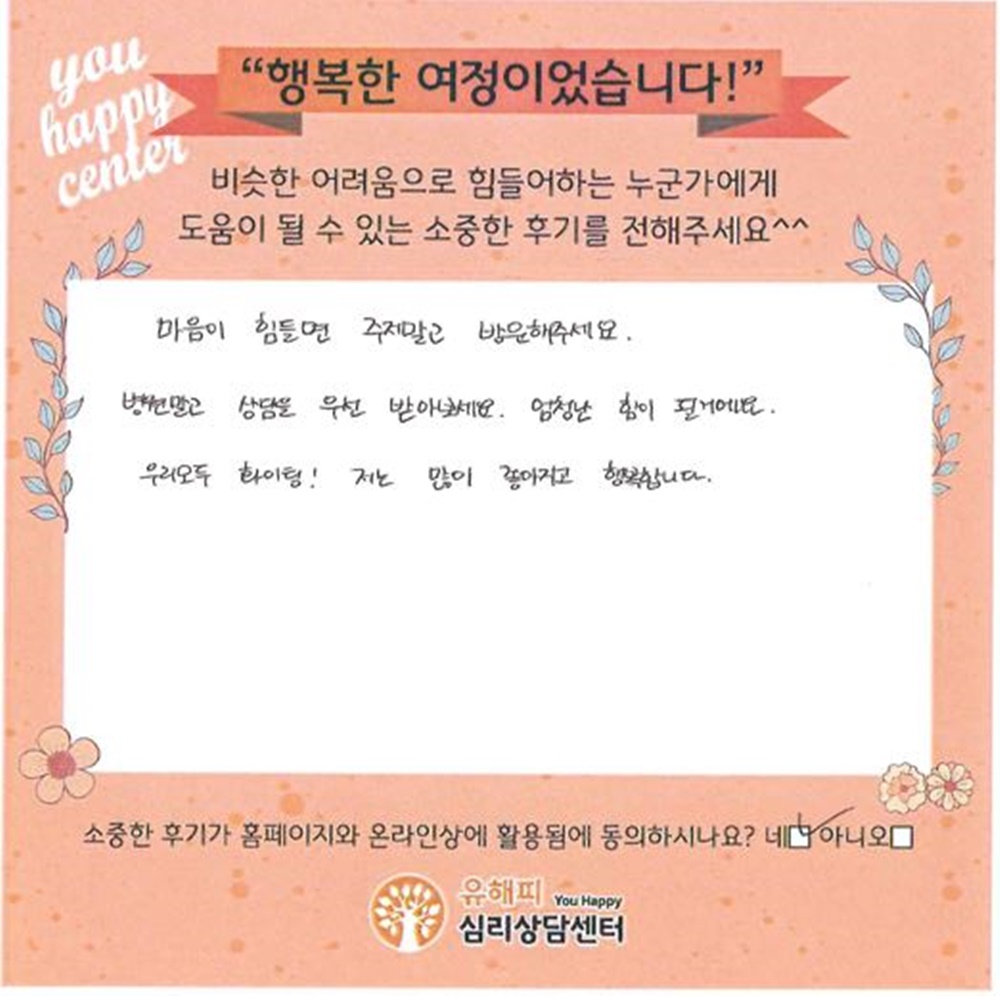 you
happy
center
“행복한 여정이었습니다!”
비슷한 어려움으로 힘들어하는 누군가에게
도움이 될 수 있는 소중한 후기를 전해주세요^^
마음이 힘들면 주저말고 방문해주세요.
병원말고 상담을 우선 받아보세요. 엄청난 힘이 될거에요.
우리모두 화이팅! 저는 많이 좋아지고 행복합니다.
소중한 후기가 홈페이지와 온라인상에 활용됨에 동의하시나요? 네 아니오
유해피 You Happy
심리상담센터